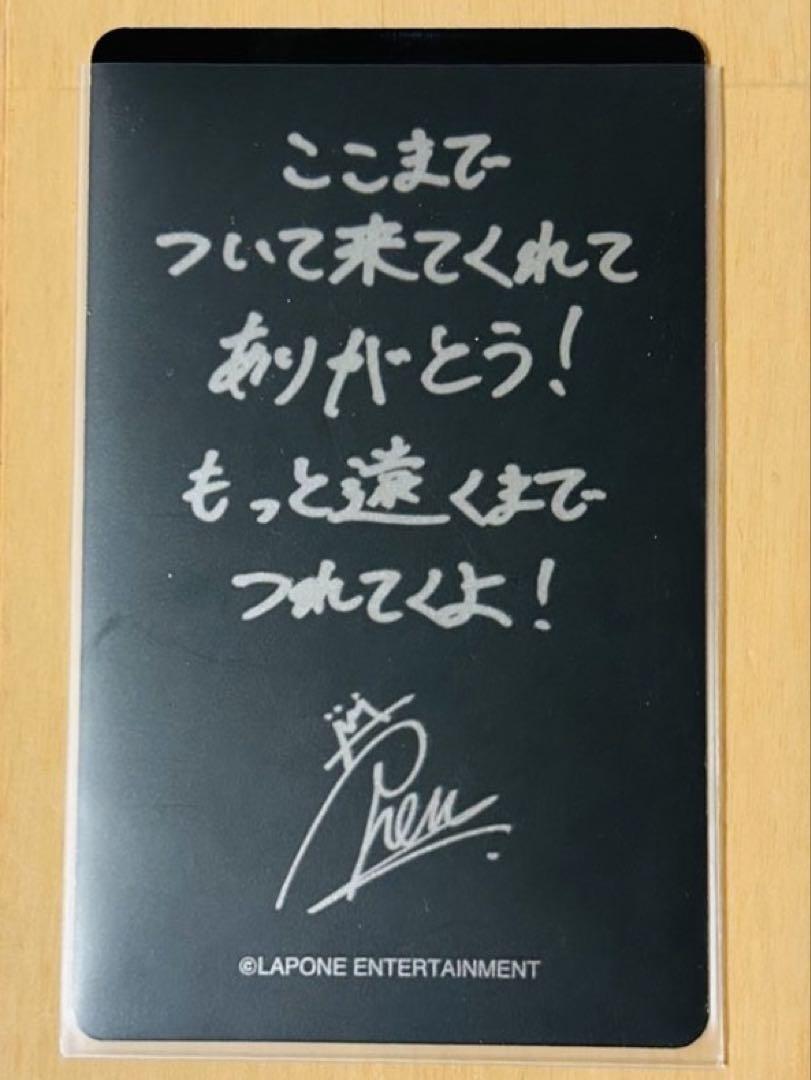 ここまで
ついて来てくれて
ありがとう!
もっと遠くまで
つれてくよ!
Ren
©LAPONE ENTERTAINMENT